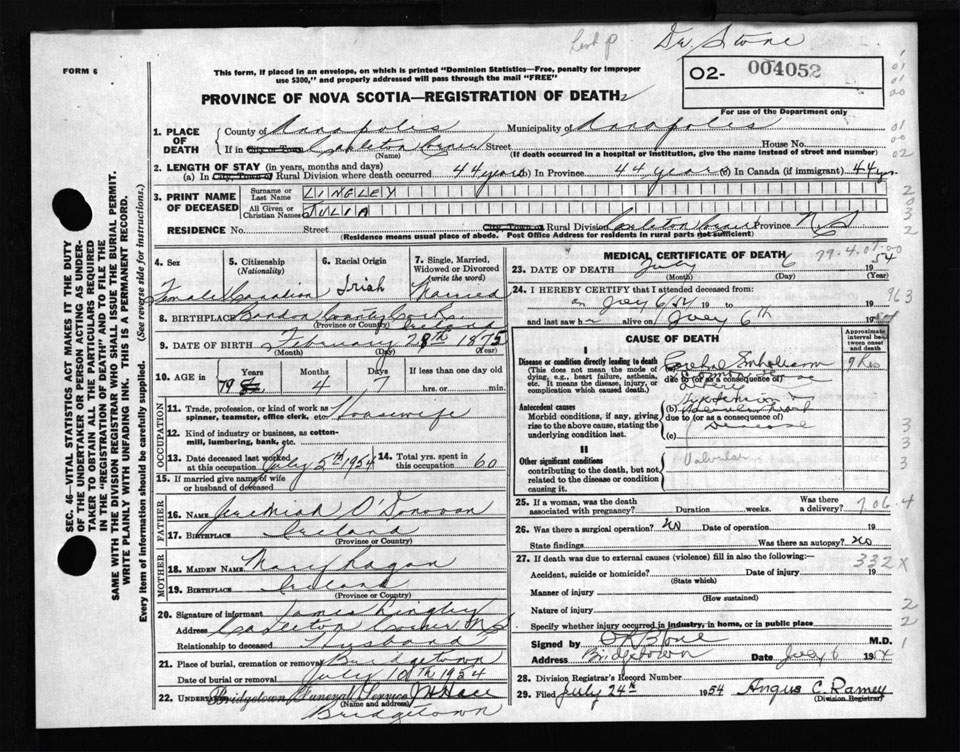 Dr. Stone
FORM 6
This form, if placed in an envelope, on which is printed "Dominion Statistics—Free, penalty for improper
use $300," and properly addressed will pass through the mail "FREE"
02- 004052
PROVINCE OF NOVA SCOTIA—REGISTRATION OF DEATH
For use of the Department only
1. PLACE OF DEATH
County of Annapolis Municipality of Annapolis
If in City or Town Carleton Corner Street House No.
(Name) (If death occurred in a hospital or institution, give the name instead of street and number)
2. LENGTH OF STAY (in years, months and days)
(a) In City, Town or Rural Division where death occurred 44 years (b) In Province 44 years (c) In Canada (if immigrant) 44 yrs
3. PRINT NAME OF DECEASED
Surname or Last Name LINGLEY
All Given or Christian Names JULIA
RESIDENCE No. Street City, Town or Rural Division Carleton Corner Province N.S
(Residence means usual place of abode. Post Office Address for residents in rural parts not sufficient)
4. Sex
Female
5. Citizenship (Nationality)
Canadian
6. Racial Origin
Irish
7. Single, Married, Widowed or Divorced (write the word)
Married
8. BIRTHPLACE Bandon County Cork Ireland
(Province or Country)
9. DATE OF BIRTH February 28th 1875
(Month) (Day) (Year)
10. AGE in Years Months Days If less than one day old
79 4 7 hrs. or min.
OCCUPATION
11. Trade, profession, or kind of work as spinner, teamster, office clerk, etc. Housewife
12. Kind of industry or business, as cotton-mill, lumbering, bank, etc.
13. Date deceased last worked at this occupation July 5th 1954
14. Total yrs. spent in this occupation 60
15. If married give name of wife or husband of deceased
FATHER
16. NAME Jeremiah O'Donovan
17. BIRTHPLACE Ireland
(Province or Country)
MOTHER
18. MAIDEN NAME Mary Ragan
19. BIRTHPLACE Ireland
(Province or Country)
20. Signature of informant James Lingley
Address Carleton Corner N.S.
Relationship to deceased Husband
21. Place of burial, cremation or removal Bridgetown
Date of burial or removal July 10th 1954
22. Bridgetown Funeral Service
(Name and address)
Bridgetown
MEDICAL CERTIFICATE OF DEATH
23. DATE OF DEATH July 6 1954
(Month) (Day) (Year)
24. I HEREBY CERTIFY that I attended deceased from:
on July 6 54 19 to 19
and last saw h alive on July 6th 1954
CAUSE OF DEATH
Approximate interval between onset and death
I
Disease or condition directly leading to death
(This does not mean the mode of dying, e.g., heart failure, asthenia, etc. It means the disease, injury, or complication which caused death.)
Cerebral Embolism 9 hrs
due to (or as a consequence of)
Antecedent causes
Morbid conditions, if any, giving rise to the above cause, stating the underlying condition last.
(b)
due to (or as a consequence of)
Disease
(c)
II
Other significant conditions
contributing to the death, but not related to the disease or condition causing it.
Valvular
25. If a woman, was the death associated with pregnancy? Duration weeks. Was there a delivery?
26. Was there a surgical operation? No Date of operation 19
State findings Was there an autopsy? No
27. If death was due to external causes (violence) fill in also the following:
332X
Accident, suicide or homicide? Date of injury 19
(State which)
Manner of injury
(How sustained)
Nature of injury
Specify whether injury occurred in industry, in home, or in public place
Signed by Stone M.D.
Address Bridgetown Date July 6 1954
28. Division Registrar's Record Number
29. Filed July 24th 1954 Angus C. Ramey
(Division Registrar)
SEC. 46—VITAL STATISTICS ACT MAKES IT THE DUTY
OF THE UNDERTAKER OR PERSON ACTING AS UNDER-
TAKER TO OBTAIN ALL THE PARTICULARS REQUIRED
IN THE "REGISTRATION OF DEATH" AND TO FILE THE
SAME WITH THE DIVISION REGISTRAR WHO SHALL ISSUE THE BURIAL PERMIT.
WRITE PLAINLY WITH UNFADING INK. THIS IS A PERMANENT RECORD.
Every item of information should be carefully supplied. (See reverse side for instructions.)